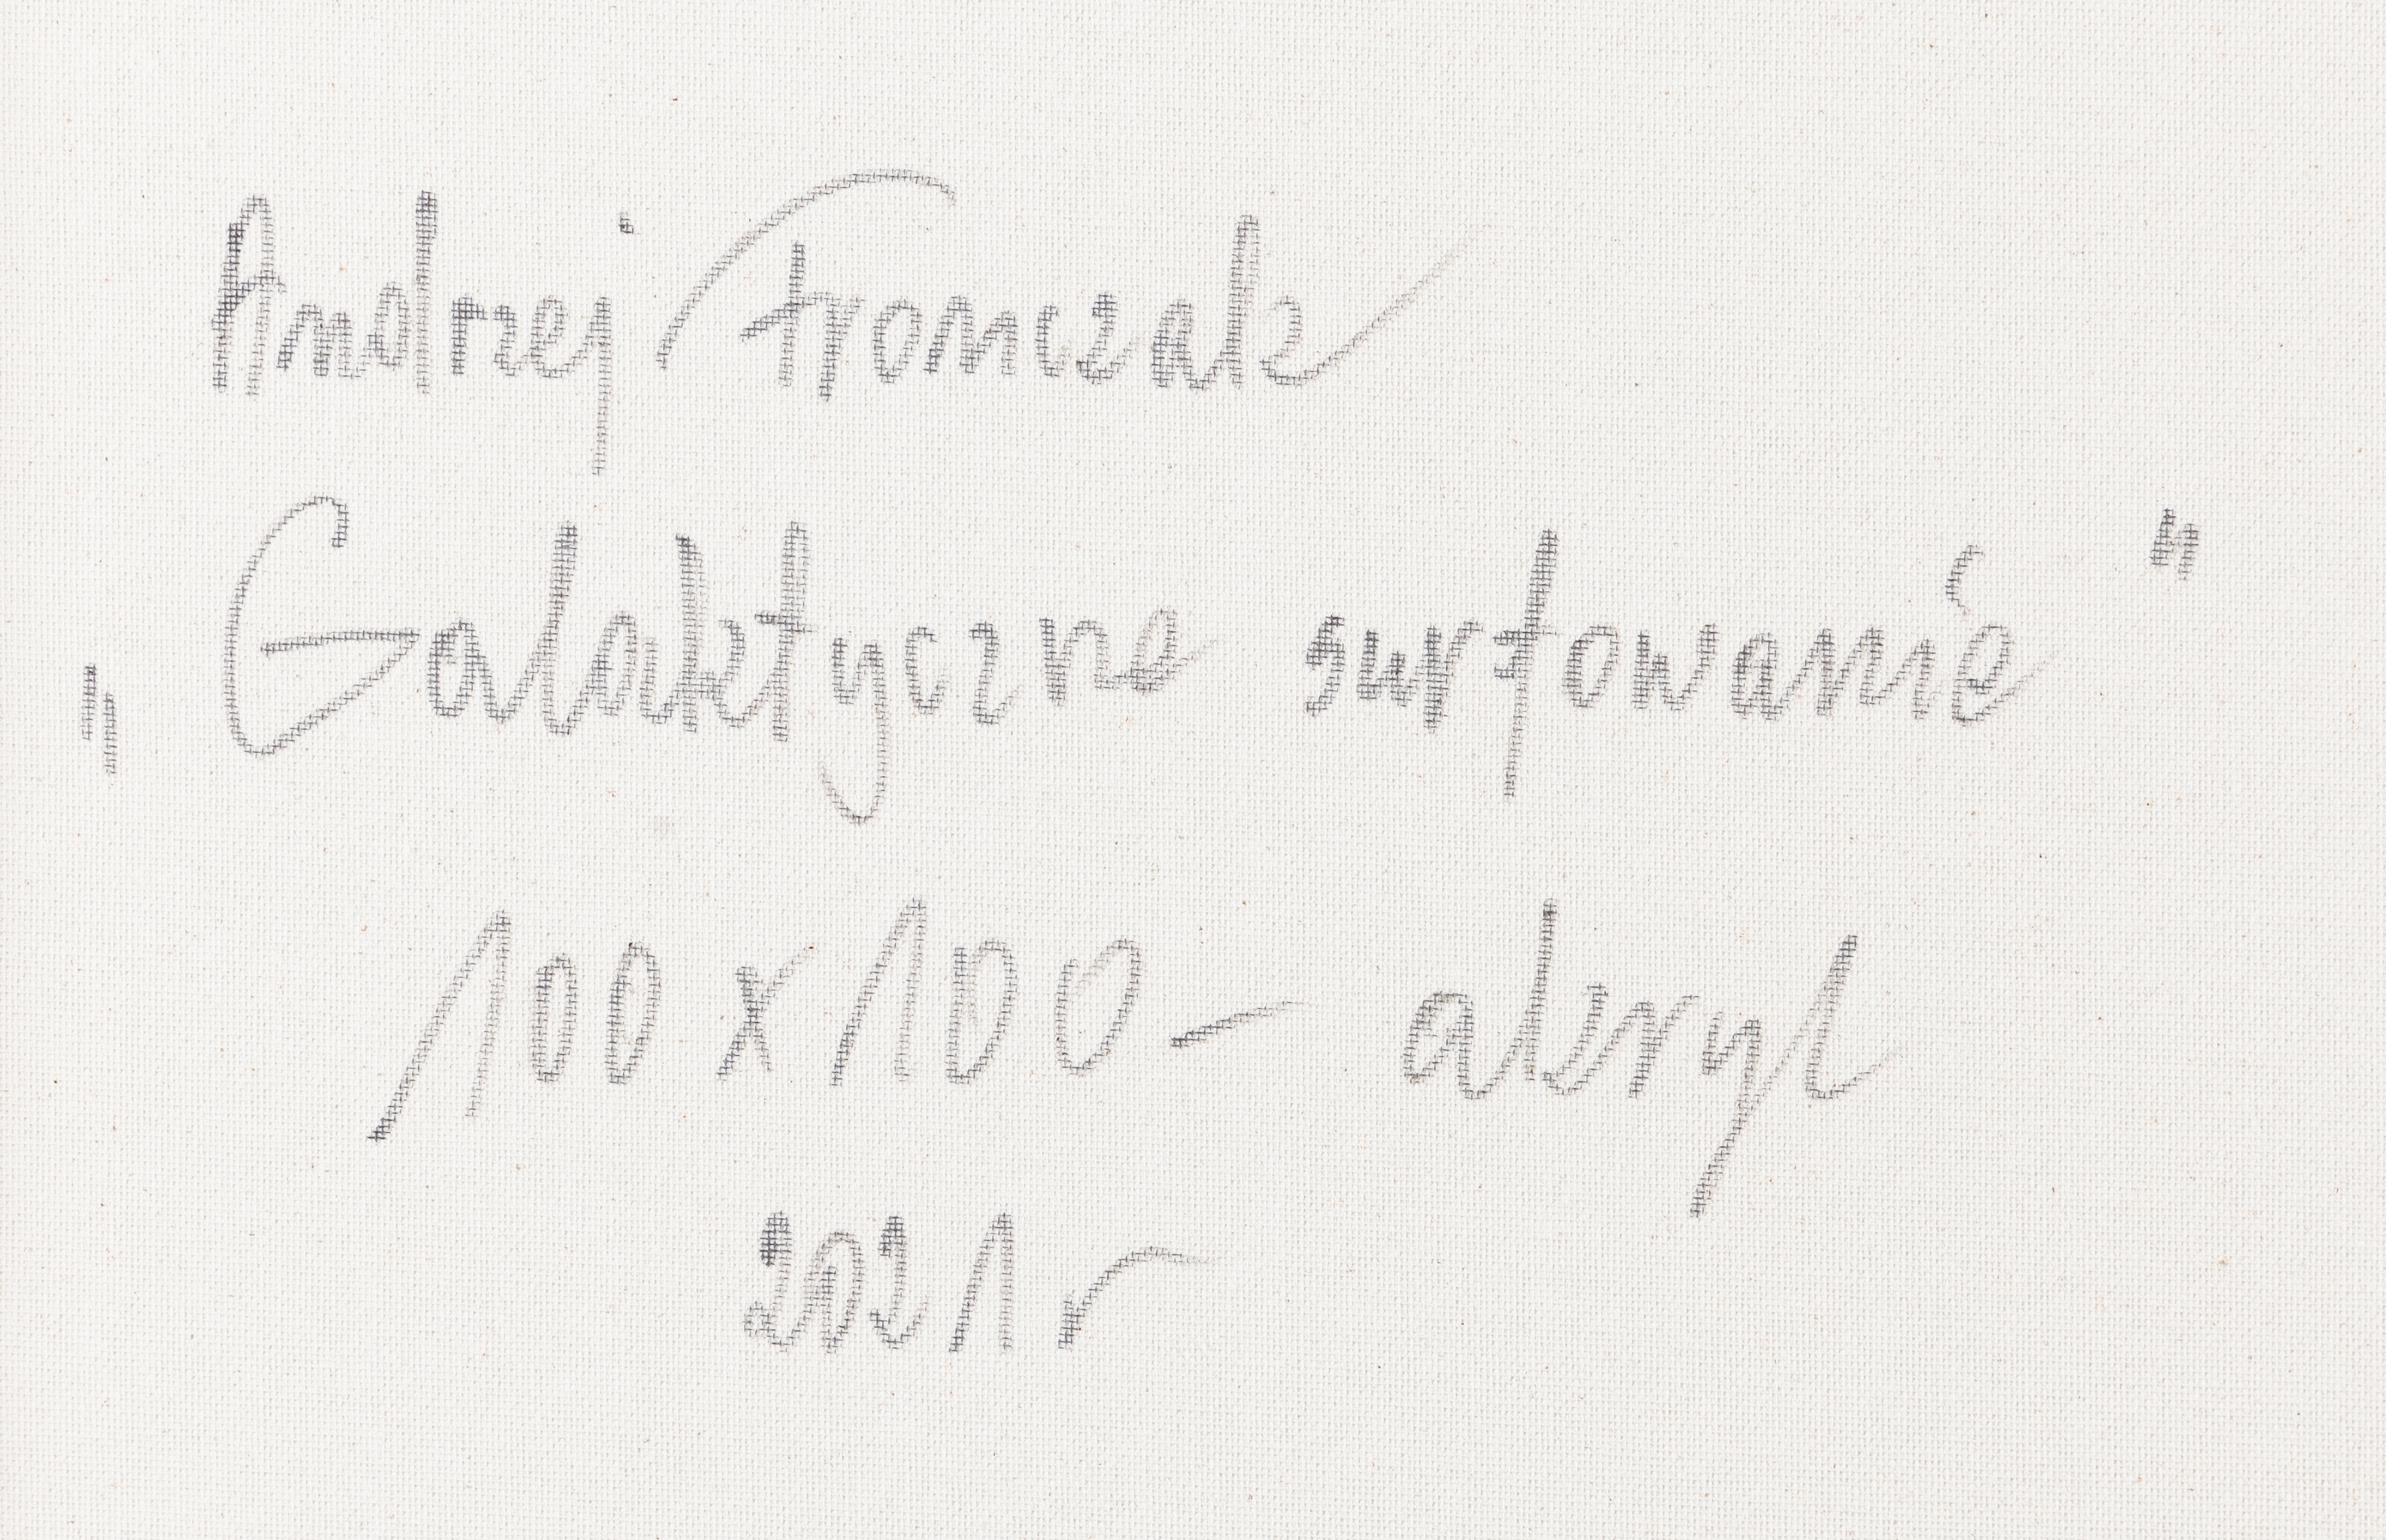 Andrzej Fronczak
„Galaktyczne surfowanie”
100 x 100 – akryl
2021 r